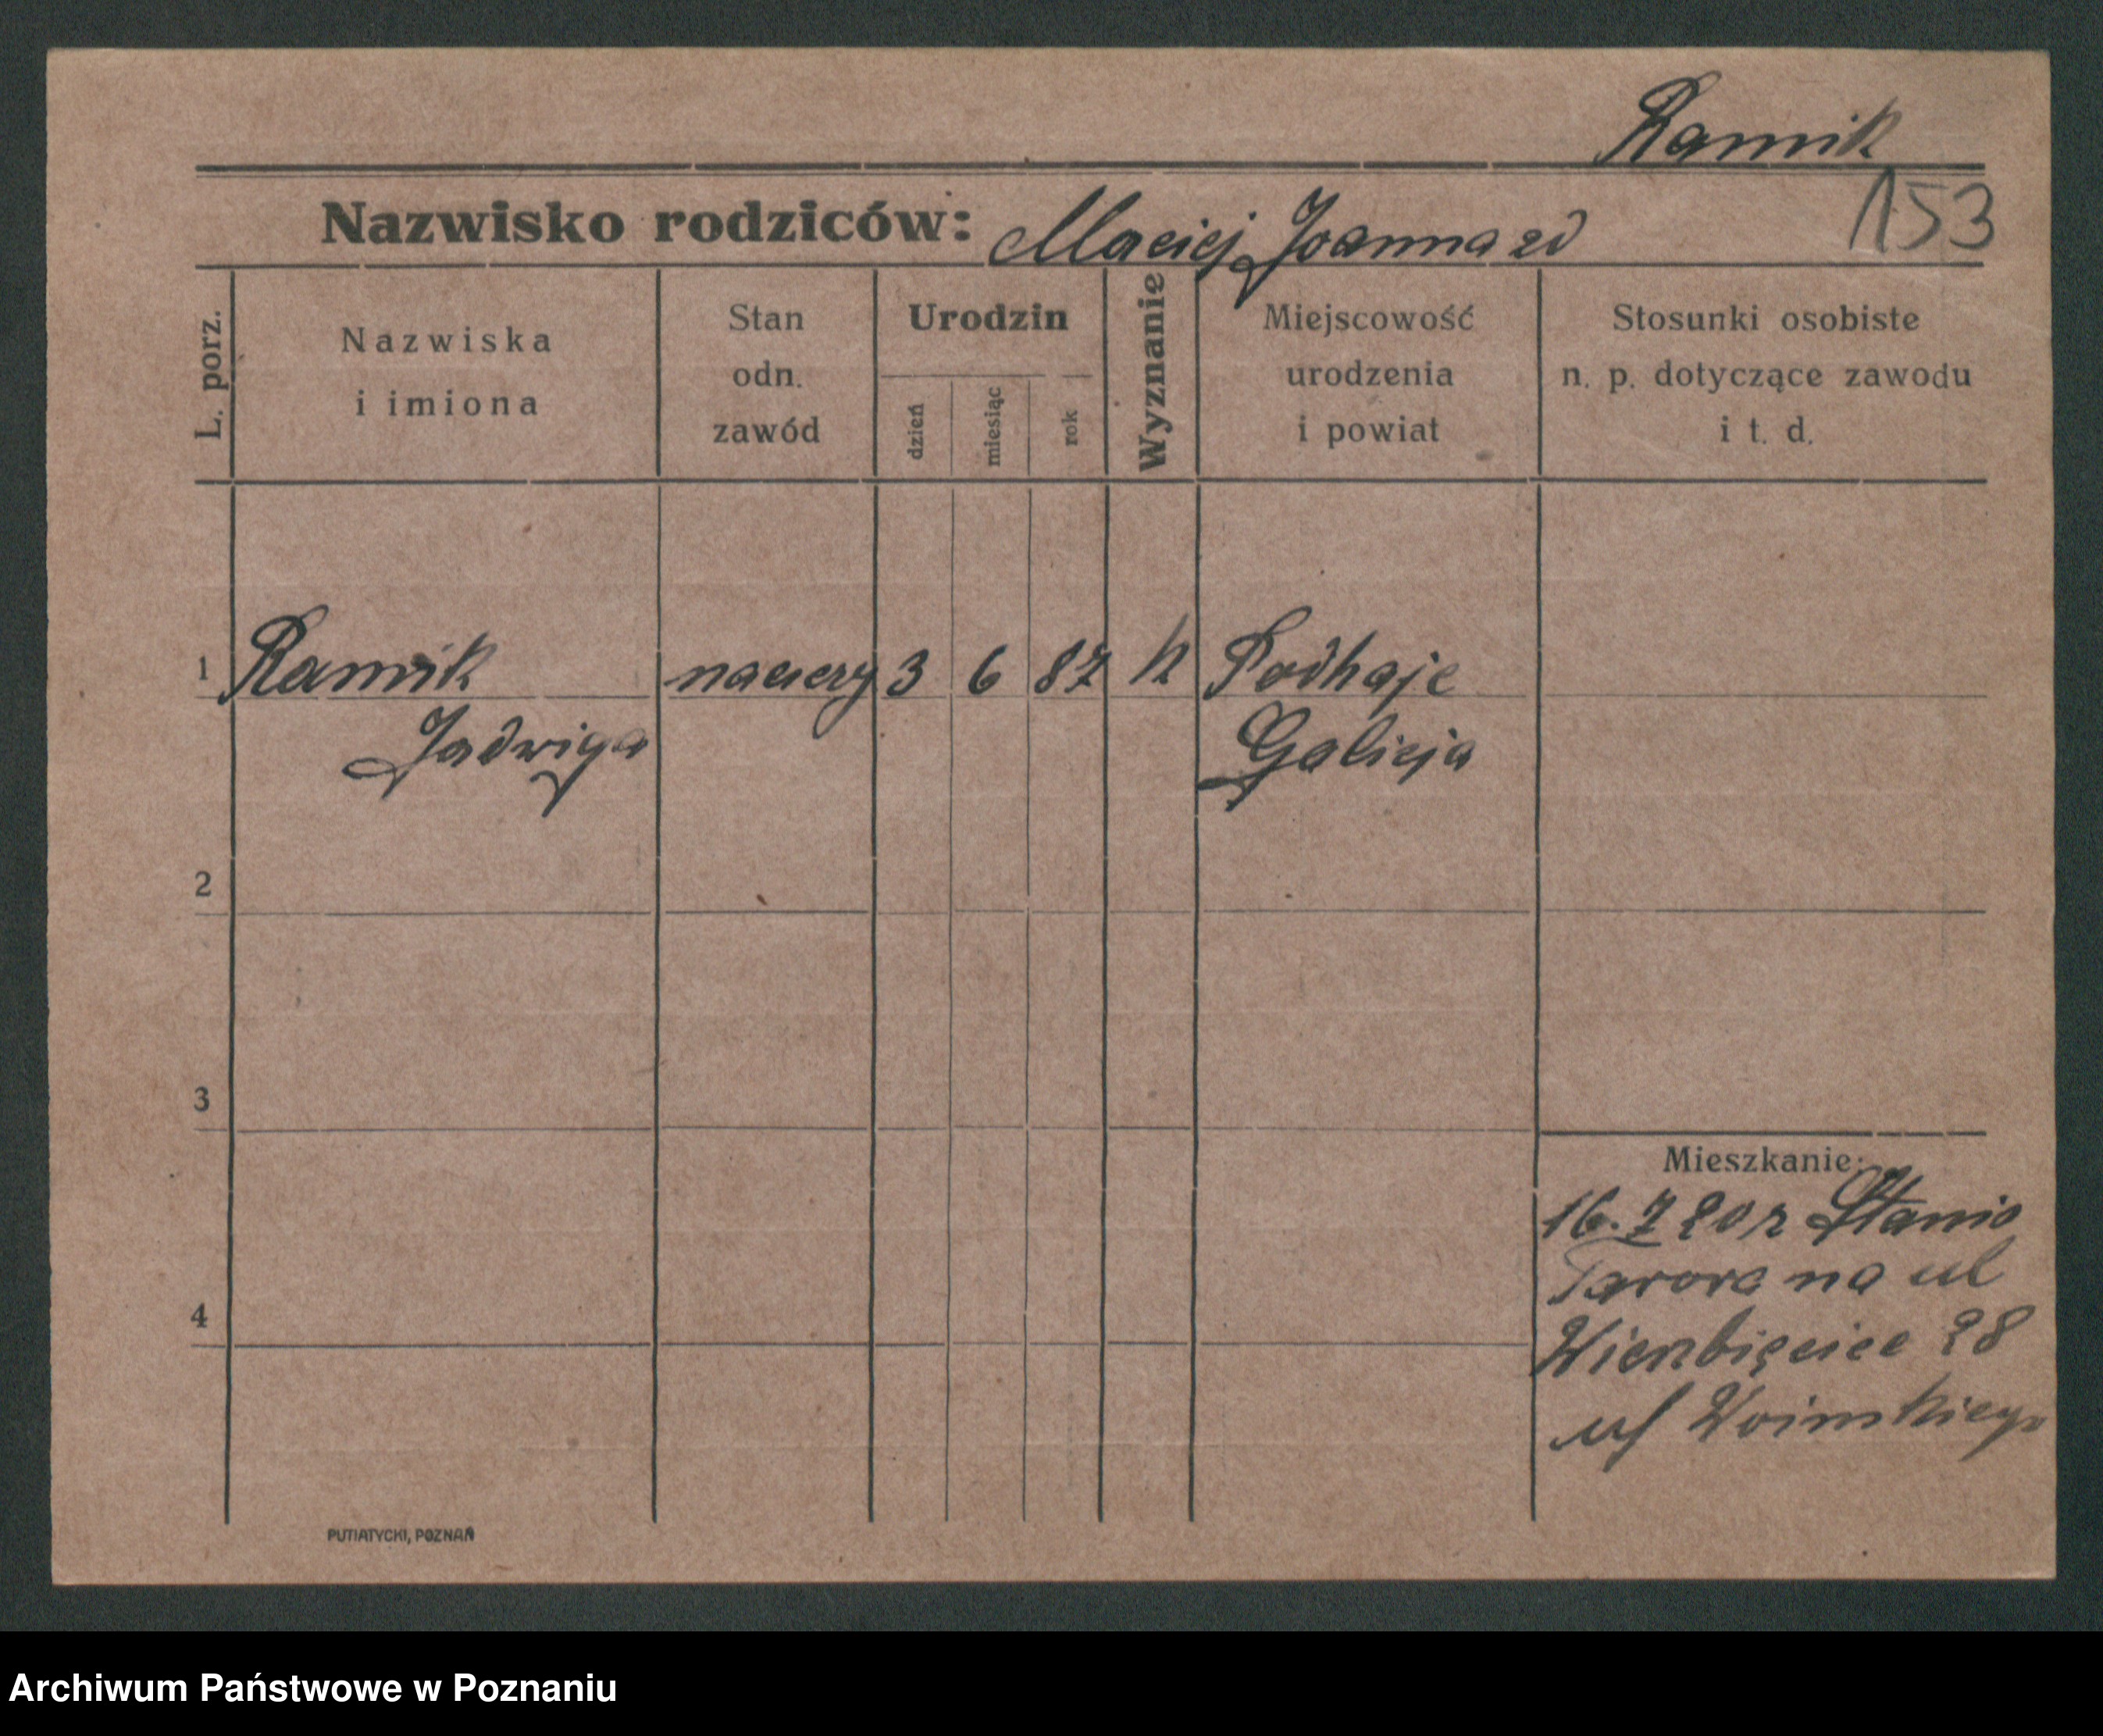 Rannik
153
Nazwisko rodziców: Maciej Joanna zd
L. porz.
Nazwiska
i imiona
Stan
odn.
zawód
Urodzin
dzień
miesiąc
rok
Wyznanie
Miejscowość
urodzenia
i powiat
Stosunki osobiste
n. p. dotyczące zawodu
i t. d.
1 Rannik nauczy 3 6 87 k Podhaje
Jadwiga Galicja
2
3
4
Mieszkanie:
16. 7 20 r Stanis
na ul
Wierzbięcice 28
u/ Woinskiego
PUTIATYCKI, POZNAŃ
Archiwum Państwowe w Poznaniu